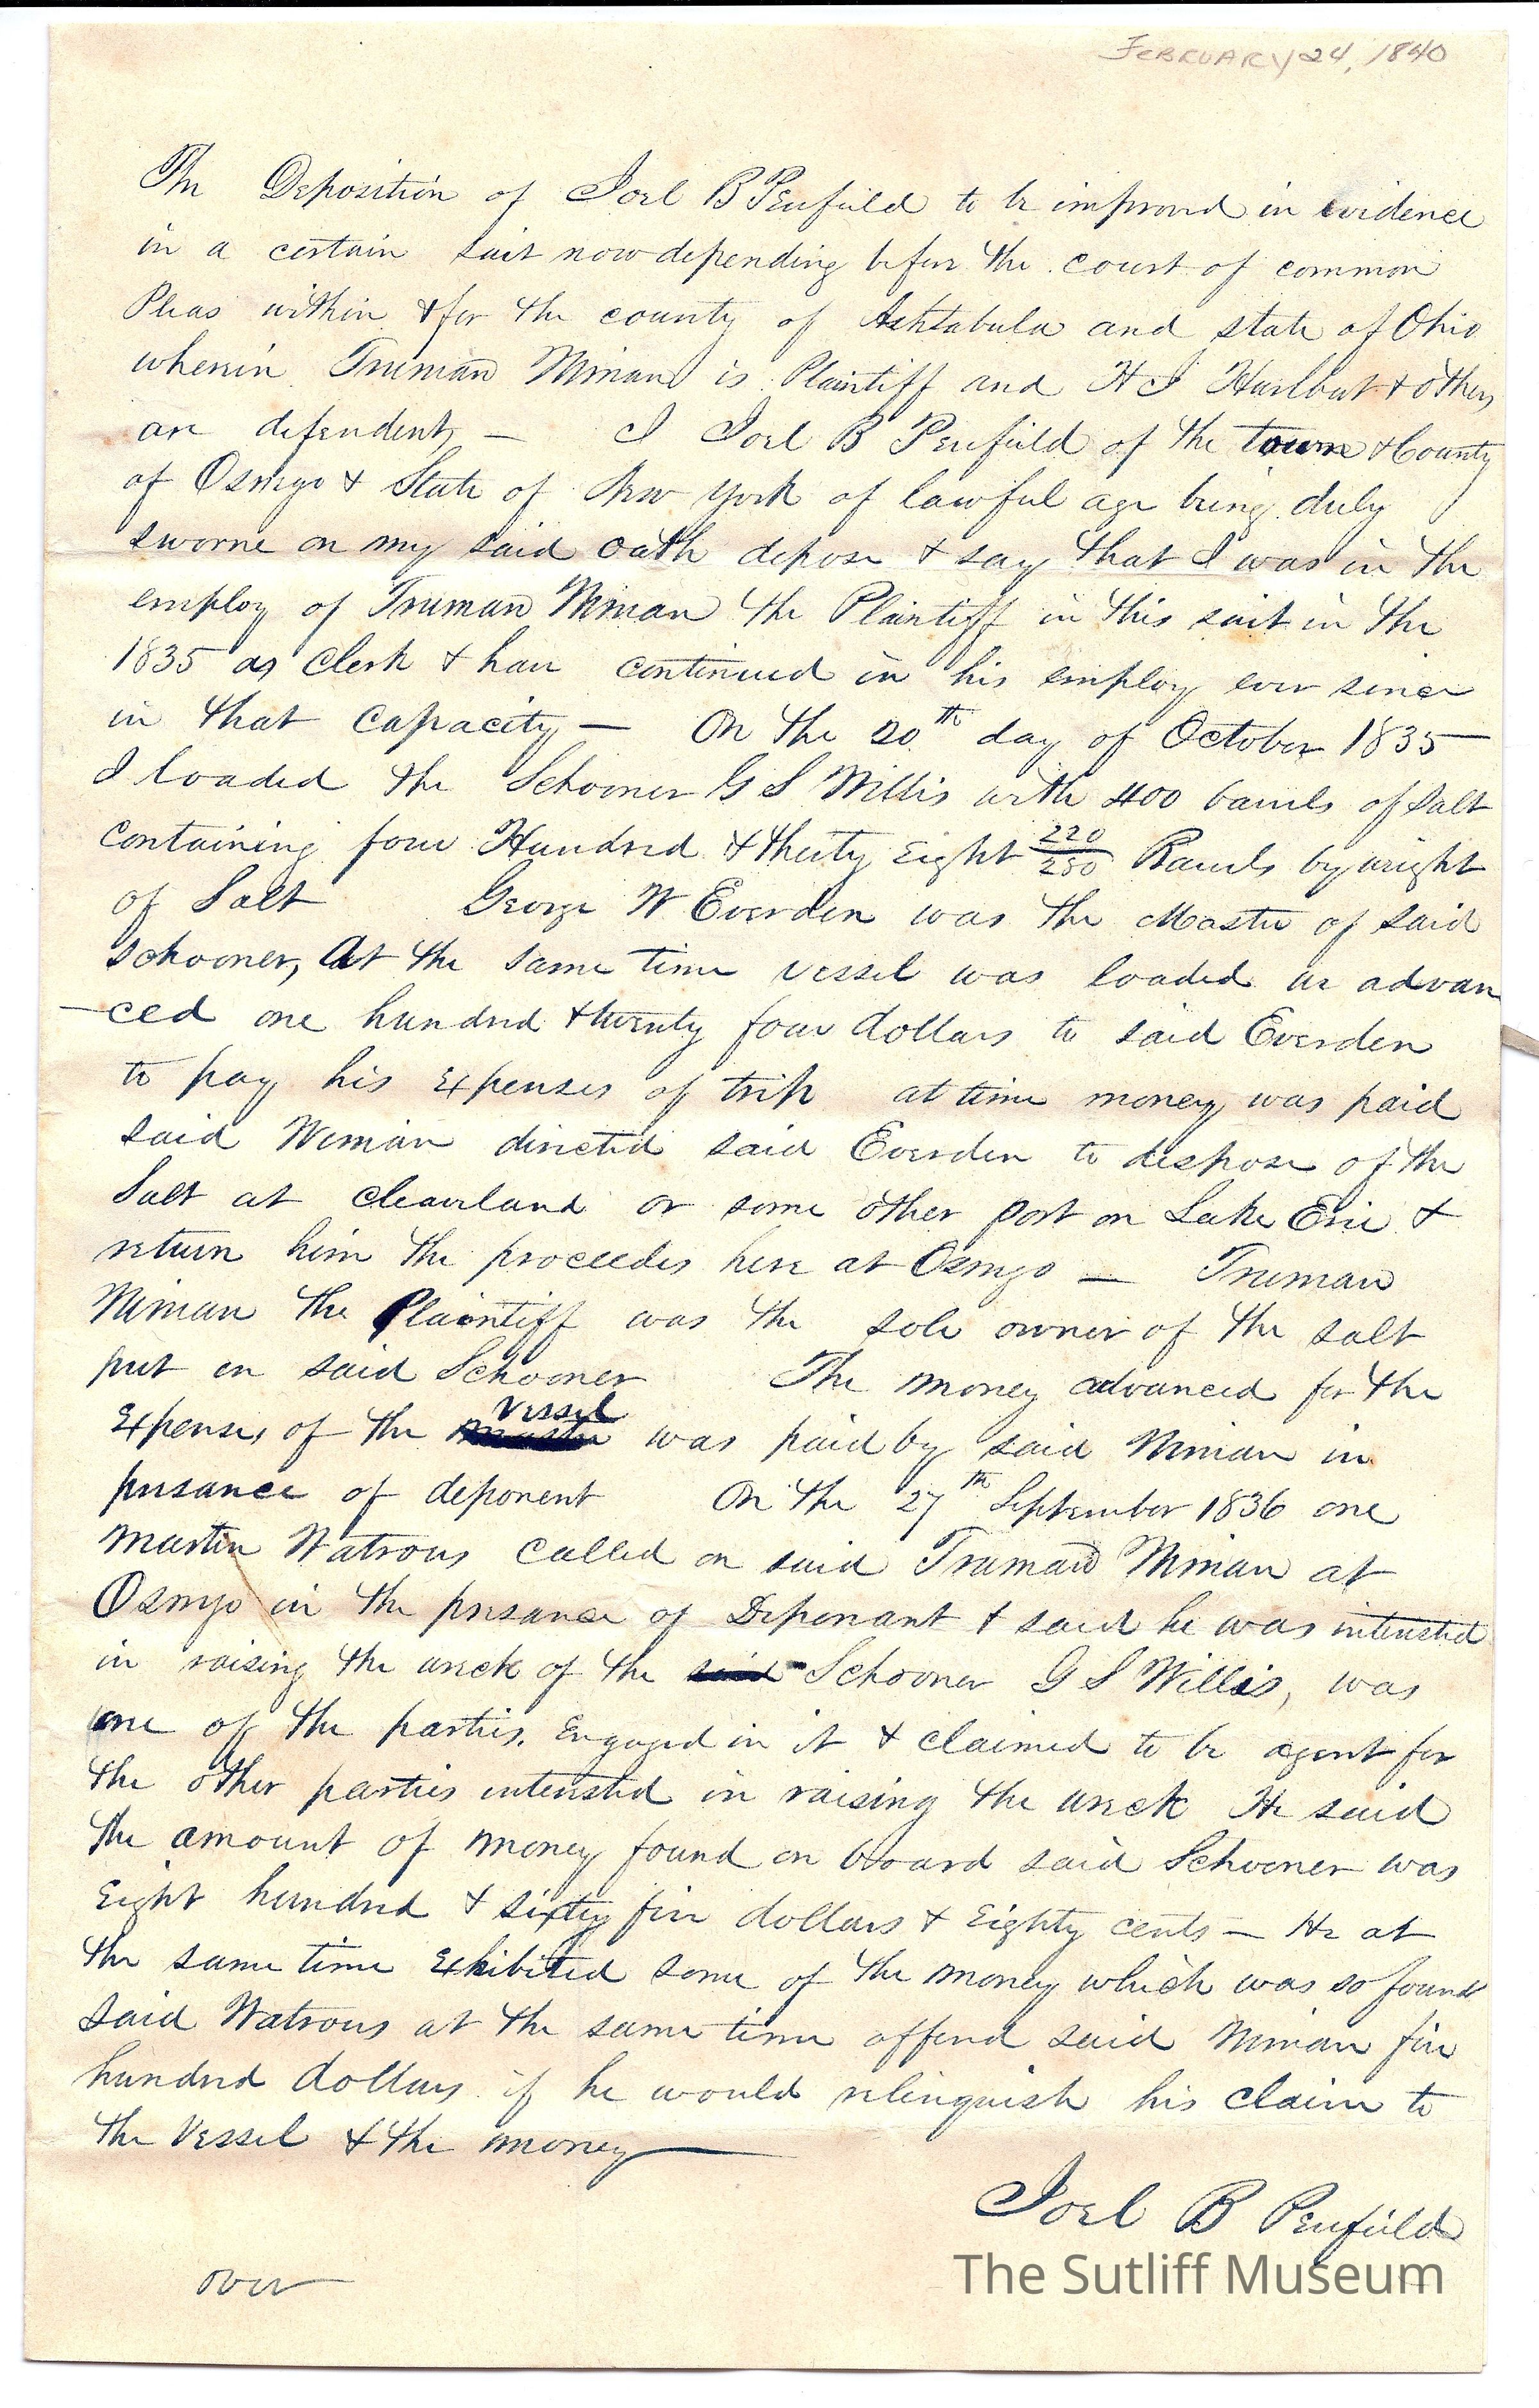 FEBRUARY 24, 1840
The Deposition of Joel B Penfield to be improved in evidence
in a certain suit now depending before the court of common
Pleas within & for the county of Ashtabula and state of Ohio
wherein Truman Wiman is Plaintiff and H J Hurlbut & others
are defendents — I Joel B Penfield of the town & County
of Oswego & State of New York of lawful age being duly
sworne on my said oath depose & say that I was in the
employ of Truman Wiman the Plaintiff in this suit in the
1835 as Clerk & have continued in his employ ever since
in that capacity — On the 20th day of October 1835
I loaded the Schooner G S Willis with 400 barrels of salt
containing four Hundred & thirty Eight 220/280 Barrels by weight
of Salt George W Everden was the Master of said
schooner, At the same time vessel was loaded we advan
-ced one hundred & twenty four dollars to said Everden
to pay his Expenses of trip at time money was paid
said Wiman directed said Everden to dispose of the
Salt at Cleaveland or some other port on Lake Erie &
return him the proceedes here at Oswego — Truman
Wiman the Plaintiff was the sole owner of the salt
put on said Schooner The money advanced for the
Expenses of the Vessel was paid by said Wiman in
presance of deponent On the 27th September 1836 one
Martin Watrous called on said Truman Wiman at
Oswego in the presance of Deponant & said he was intersted
in raising the wreck of the said Schooner G S Willis, was
one of the parties. Engaged in it & claimed to be agent for
the other parties intersted in raising the wreck He said
the amount of money found on board said Schooner was
Eight hundred & sixty five dollars & Eighty cents — He at
the same time Exhibited some of the money which was so found
said Watrous at the same time offered said Wiman five
hundred dollars if he would relinquish his claim to
the Vessel & the money —
Joel B Penfield
The Sutliff Museum
over